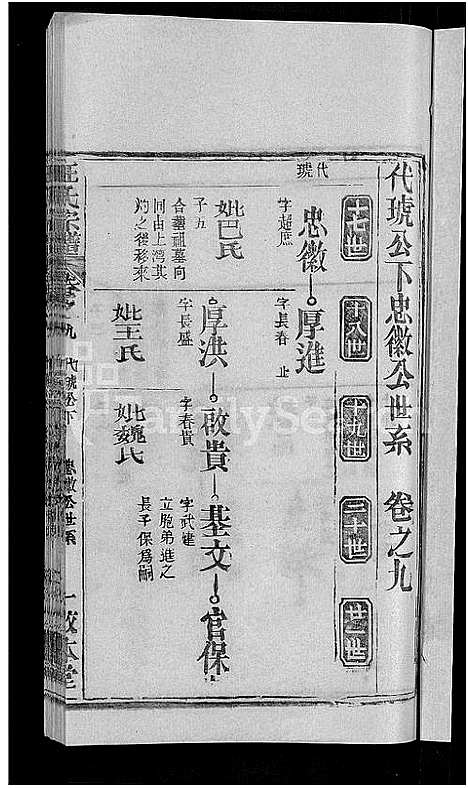 代琥公下忠徽公世系 卷之九
十七世
十八世
十九世
二十世
廿一世
代琥
忠徽
厚進
字超庶
字長春 止
妣巴氏
子五
合墓祖墓向
同由上灣其
灼之後移來
厚洪
啟貴
基文
官保
字長盛
字春貴
字武建
立胞弟進之
長子保為嗣
妣王氏
妣魏氏
氏宗譜
卷之九 代琥公下 忠徽公世系
一 敬本堂
FamilySearch